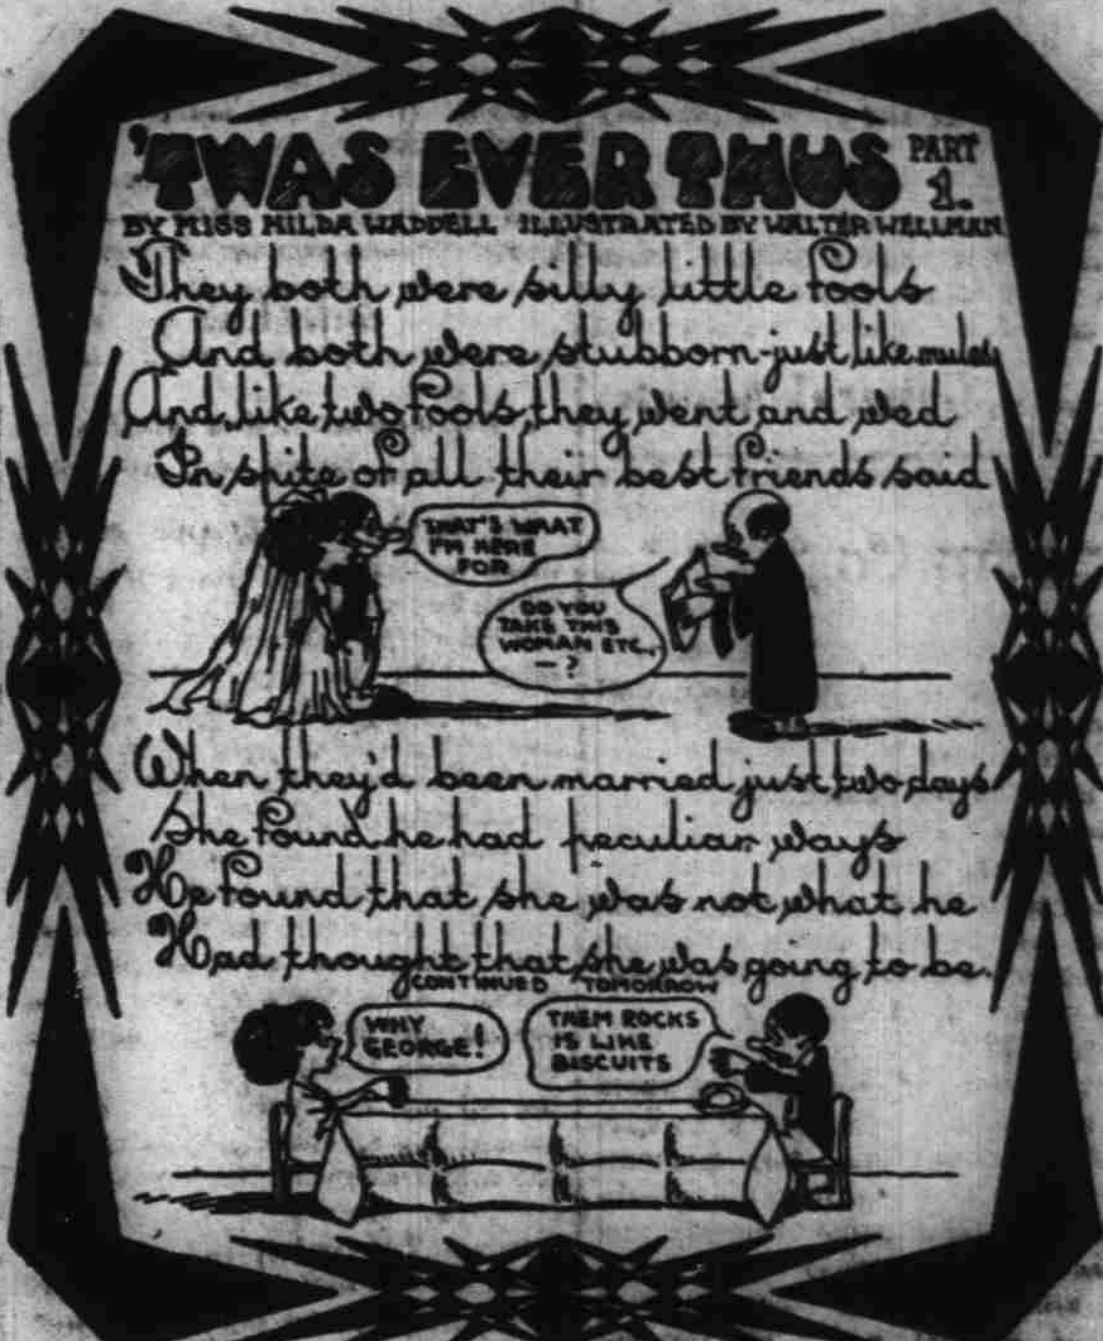 'TWAS EVER THUS PART 1.
BY MISS HILDA WADDELL ILLUSTRATED BY WALTER WELLMAN
They both were silly little fools
And both were stubborn-just like mules
And, like two fools, they went and wed
In spite of all their best friends said
THAT'S WHAT
I'M HERE
FOR
DO YOU
TAKE THIS
WOMAN ETC.,
—?
When they'd been married just two days
She found he had peculiar ways
He found that she was not what he
Had thought that she was going to be.
CONTINUED TOMORROW
WHY
GEORGE!
THEM ROCKS
IS LIKE
BISCUITS